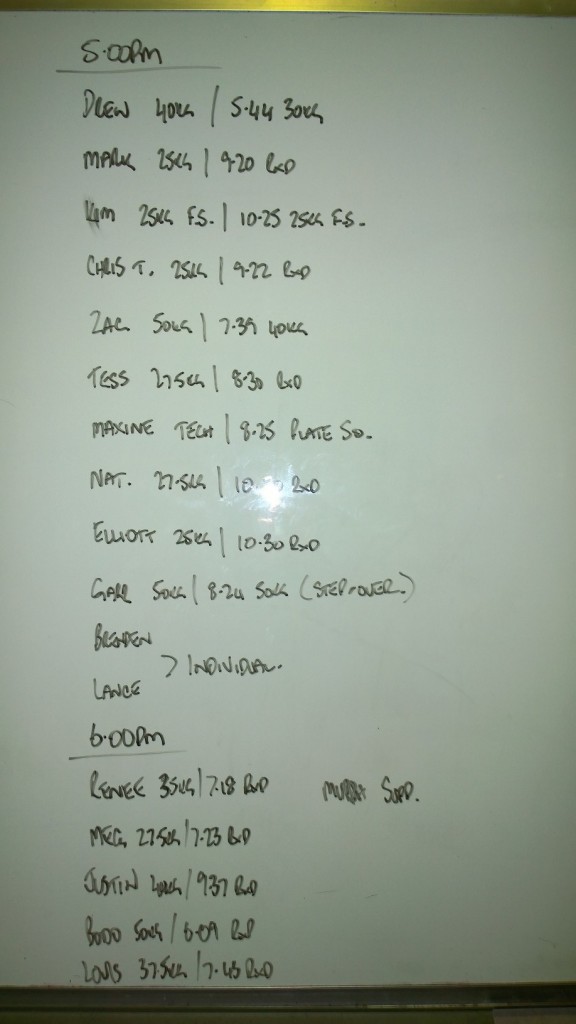 5.00PM
DREW 40KG | 5.44 30KG
MARK 25KG | 9.20 RxD
KIM 25KG F.S. | 10.25 25KG F.S.
CHRIS T. 25KG | 9.22 RxD
ZAC 50KG | 7.39 40KG
TESS 27.5KG | 8.30 RxD
MAXINE TECH | 8.25 PLATE SQ.
NAT. 27.5KG | RxD
ELLIOTT 25KG | 10.30 RxD
50KG | 8.24 50KG (STEP-OVER.)
BRENDEN
> INDIVIDUAL.
LANCE
6.00PM
RENEE 35KG | 7.18 RxD
SUPP.
MEG 27.5KG | 7.23 RxD
JUSTIN 40KG | 9.37 RxD
BODO 50KG | 6.09 RxD
LOUIS 37.5KG | 7.45 RxD